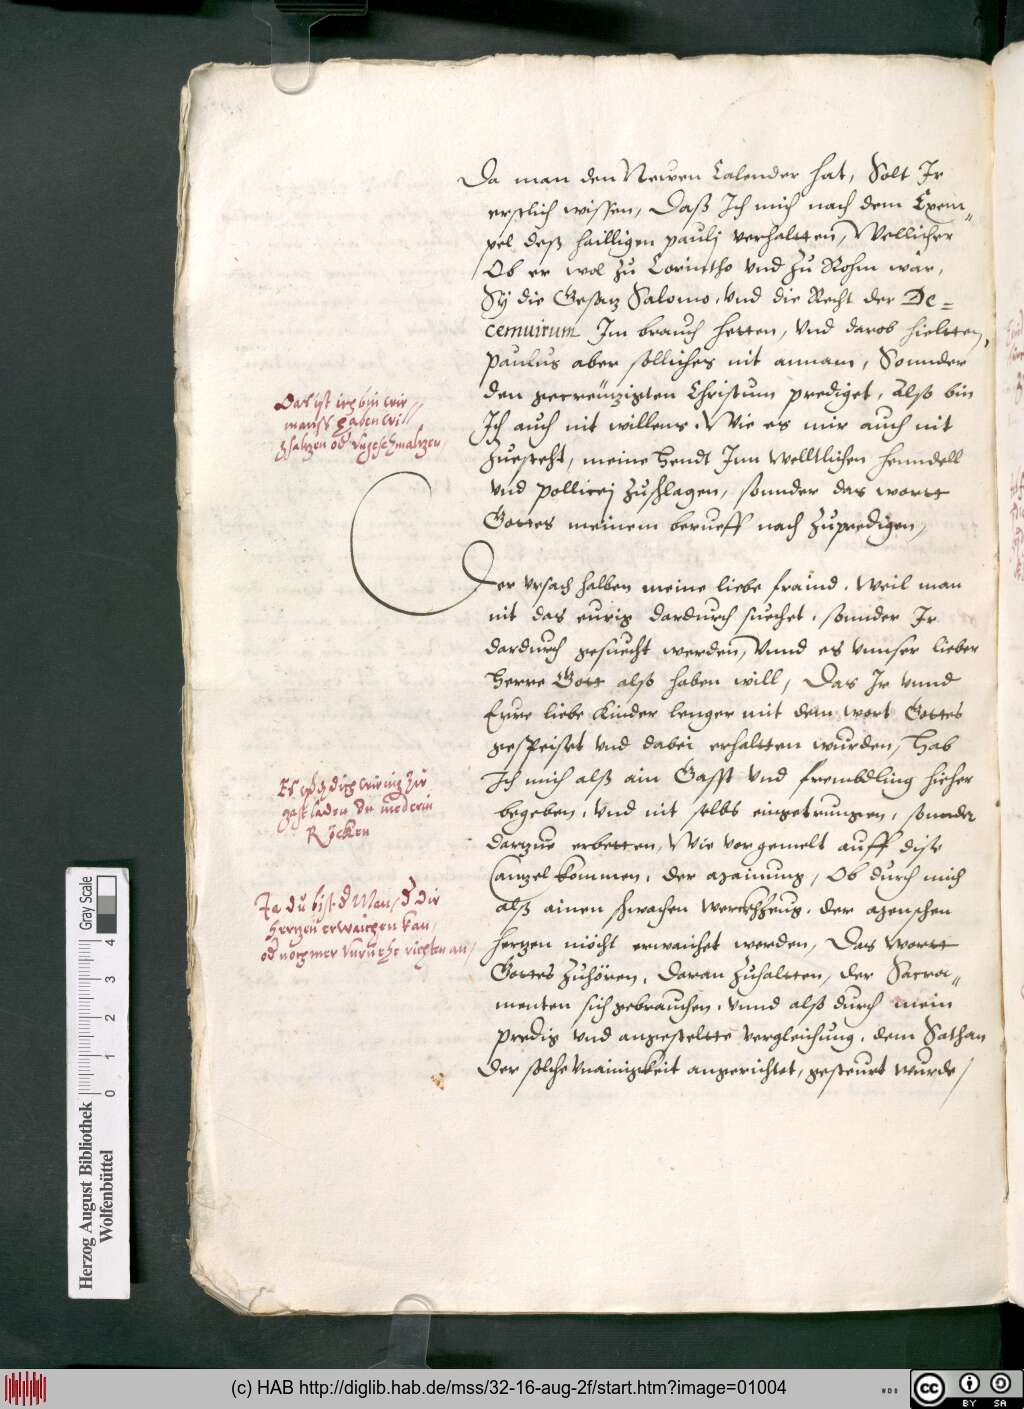 Da man den Newen Calender hat, Solt Ir
erstlich wissen, Daß Ich mich nach dem Exem„
pel deß hailligen paulj verhaltten, Wellicher
Ob er wol zu Corintho vnd zu Rohm war,
Sÿ die Gesatz Salomo, vnd die Recht der De=
cemuirum Im brauch hetten, vnd darob hieltten,
Paulus aber solliches nit annam, Sonnder
den gecreützigten Christum prediget, Alß bin
Ich auch nit willens. Wie es mir auch nit
zuesteht, meine Hendt Inn Welltlichen henndell
vnd pollicej zuschlagen, sonnder das wortt
Gottes meinem berueff nach zupredigen,
Der vrsach halben meine liebe fraind. Weil man
nit das eurig dardurch suechet, sonnder Ir
dardurch gesuecht werden, Vnnd es vnnser lieber
Herre Gott alß haben will, Das Ir vnnd
Eure liebe Kinder lenger mit dem wort Gottes
gespeiset vnd dabei erhaltten wurden, Hab
Ich mich alß ain Gasst vnd frembdling hieher
begeben, vnd nit selbs eingetrungen, sonnder
dartzue erbetten, Wie vorgemelt auff dise
Cantzel kommen, der mainung, Ob durch mich
alß ainen schwachen werckhzeug, der menschen
hertzen möcht erwaichet werden, Das wortt
Gottes zuhören, daran zuhaltten, der Sacra„
menten sich gebrauchen, vnnd alß durch mein
predig vnd angestelte vergleichung, dem Sathan
der solche vnainigkeit angerichtet, gesteurt wurde,
Das ist ich bin wie
mans haben will
gsaltzen od vngeschmaltzen,
Es hat dich wenig zu
gast laden die niderin
Röcken
Ja du bist d Man, d die
hertzen erwaichen kan,
od noch mer vnruehe richten an,
Herzog August Bibliothek
Wolfenbüttel
Gray Scale
0 1 2 3 4
(c) HAB http://diglib.hab.de/mss/32-16-aug-2f/start.htm?image=01004
WDB
cc BY SA